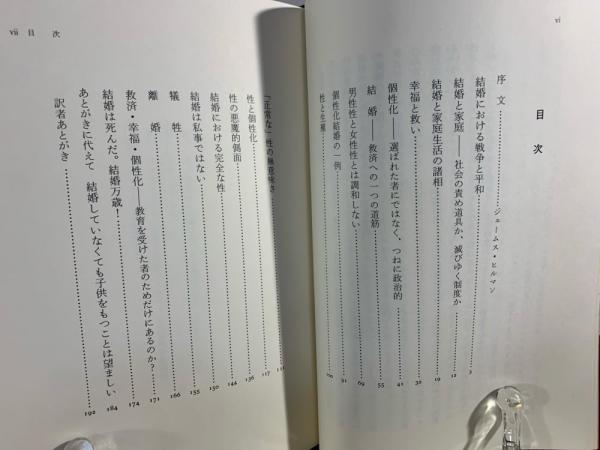 vi
目次
序文……ジェームス・ヒルマン
結婚における戦争と平和……3
結婚と家庭——社会の責め道具か、滅びゆく制度か……12
結婚と家庭生活の諸相……19
幸福と救い……30
個性化——選ばれた者にではなく、つねに政治的……41
結婚——救済への一つの道筋……55
男性性と女性性とは調和しない……69
個性化結婚の一例……91
性と生殖……100
vii 目次
「正常な」性の無意味さ……111
性と個性化……117
性の悪魔的側面……136
結婚における完全な性……146
結婚は私事ではない……150
犠牲……155
離婚……166
救済・幸福・個性化——教育を受けた者のためだけにあるのか？……171
結婚は死んだ。結婚万歳！……174
あとがきに代えて 結婚していなくても子供をもつことは望ましい……184
訳者あとがき……190